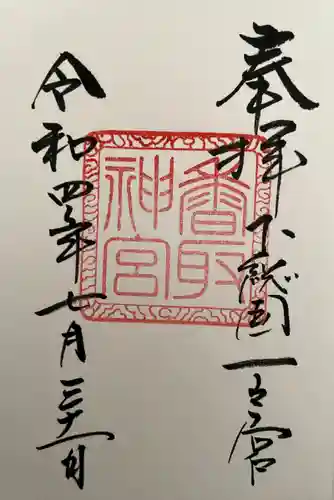 奉拝 下総国一之宮
香取
神宮
令和四年七月三十一日